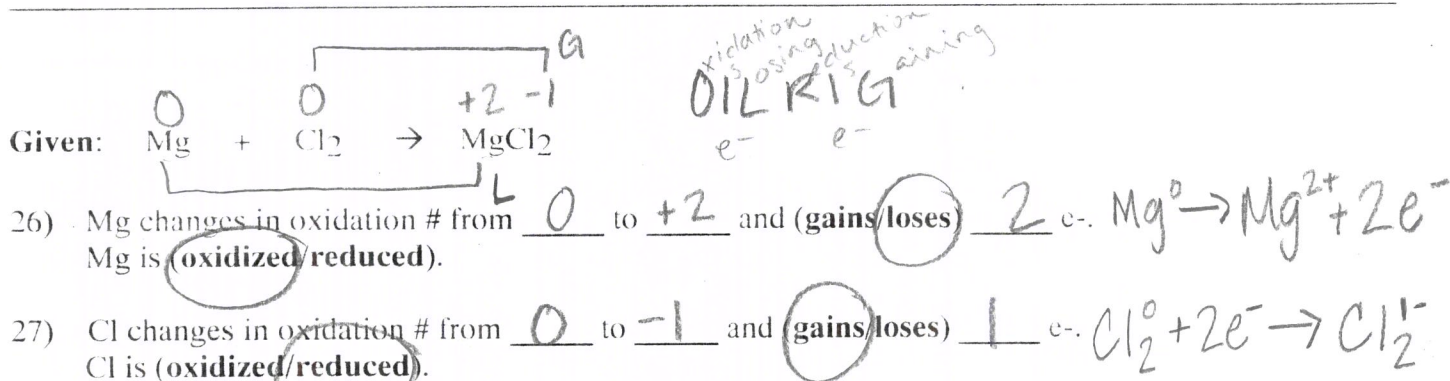 oxidation
is losing
reduction
is gaining
G
OIL RIG
e- e-
0 0 +2 -1
Given: Mg + Cl2 → MgCl2
L
26) Mg changes in oxidation # from 0 to +2 and (gains/loses) 2 e-. Mg⁰ → Mg²⁺ + 2e⁻
Mg is (oxidized/reduced).
27) Cl changes in oxidation # from 0 to -1 and (gains/loses) 1 e-. Cl₂⁰ + 2e⁻ → Cl₂¹⁻
Cl is (oxidized/reduced).